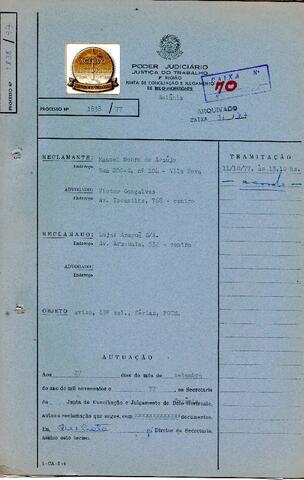 PODER JUDICIÁRIO
JUSTIÇA DO TRABALHO
3ª REGIÃO
JUNTA DE CONCILIAÇÃO E JULGAMENTO
DE BELO HORIZONTE
Goiânia
CAIXA Nº
70
ARQUIVADO
CAIXA
PROCESSO Nº 1838 / 77
PROCESSO Nº 1838 / 77
RECLAMANTE: Manoel
Endereço Rua Vila Nova
ADVOGADO: Victor Gonçalves
Endereço Av. Tocantins, 768 - centro
RECLAMADO: S/A.
Endereço Av. centro
ADVOGADO:
Endereço
OBJETO aviso, 13º sal., férias, FGTS.
TRAMITAÇÃO
11/10/77, às 13,10 hs.
AUTUAÇÃO
Aos 27 dias do mês de setembro
do ano de mil novecentos e 77 na Secretaria
da Junta de Conciliação e Julgamento de Belo Horizonte,
autuo a reclamação que segue, com xxxxxxxxxxxx documentos.
Eu, Diretor da Secretaria
assino este termo.